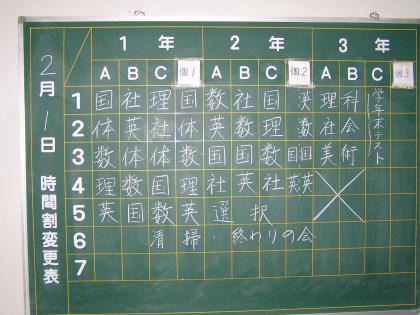 2月1日 時間割変更表
1年 2年 3年
A B C 個1 A B C 個2 A B C 個3
1 国 社 理 国 数 社 国 英 理科
2 体 英 社 体 英 数 理 数 社会
3 数 体 体 数 国 国 数 国国 美術
4 理 数 国 理 社 英 社 英英
5 英 国 数 英 選択
6 清掃・終わりの会
7
学年末テスト